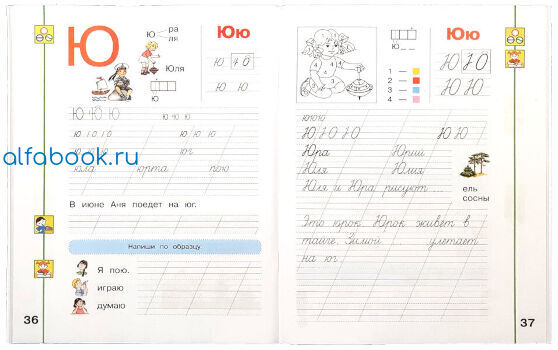 Ю
Ю ра
ля
Юля
Ю
Юю
Ю Ю
Ю Ю
Ю Ю Ю Ю Ю Ю
Ю Ю Ю Ю Ю Ю Ю
Ю Ю Ю юг
юла юрта пою
alfabook.ru
В июне Аня поедет на юг.
Напиши по образцу
Я пою.
играю
думаю
36
Ю
1 —
2 —
3 —
4 —
Юю
Ю Ю
Ю Ю
ююю
Ю Ю Ю Ю Ю
Юра Юрий
Юля Юлия
Юля и Юра рисуют ...
ель
сосны
Это юрок. Юрок живёт в
тайге. Зимой улетает
на юг.
37